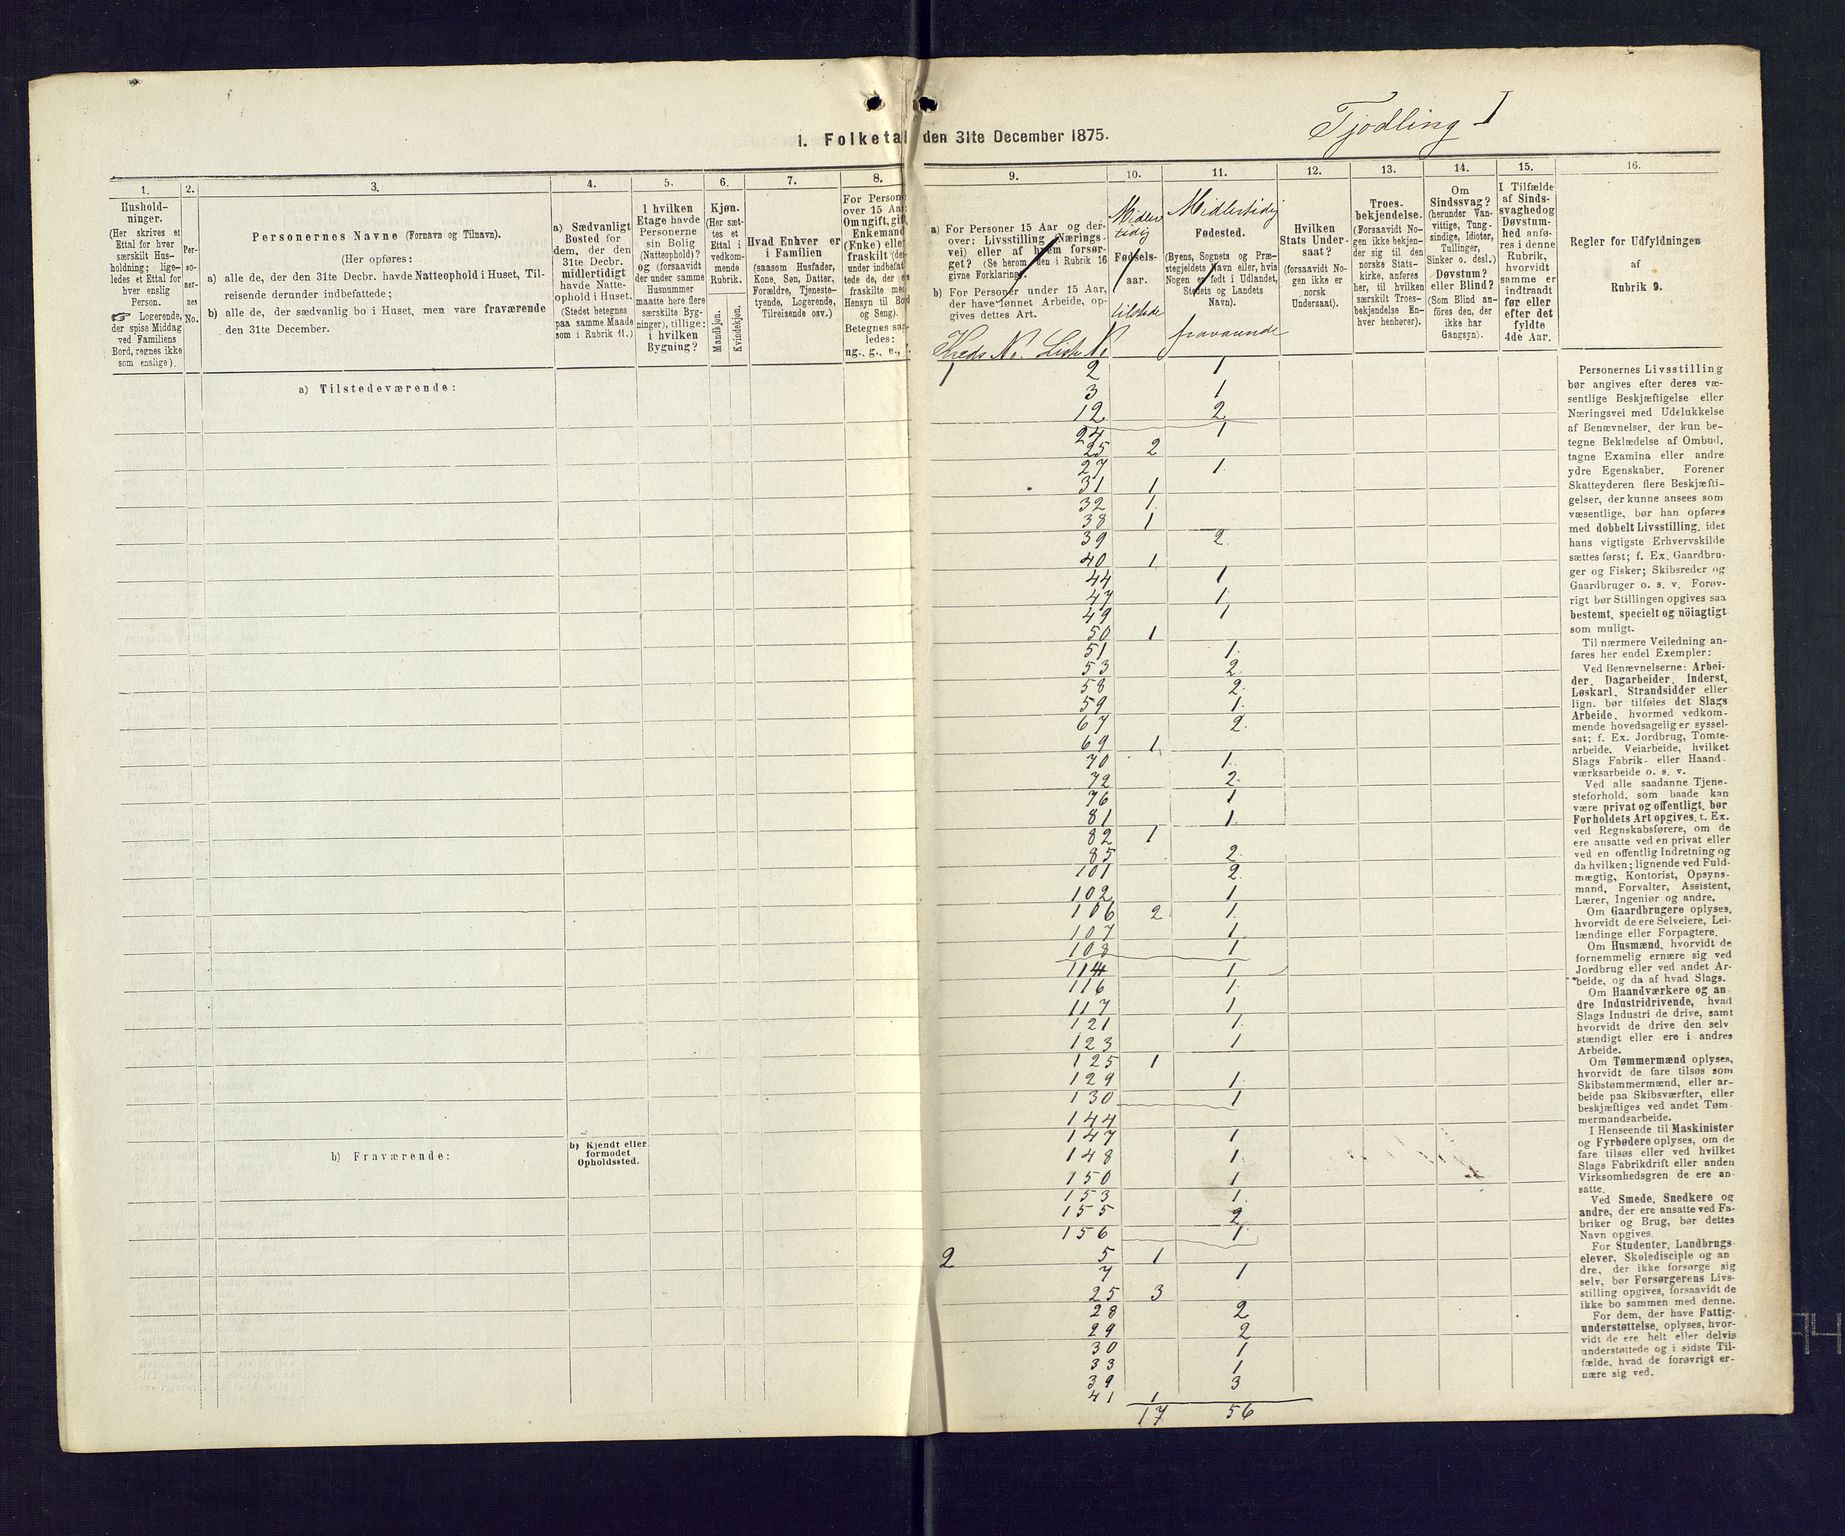 Tjødling I
1. Folketal den 31te December 1875.
1.
Hushold-
ninger.
(Her skrives et
Ettal for hver
særskilt Hus-
holdning; lige-
ledes et Ettal for
hver enslig
Person.
☞ Logerende,
der spise Middag
ved Familiens
Bord, regnes ikke
som enslige).
2.
Per-
so-
ner-
nes
No.
3.
Personernes Navne (Fornavn og Tilnavn).
(Her opføres:
a) alle de, der den 31te Decbr. havde Natteophold i Huset, Til-
reisende derunder indbefattede;
b) alle de, der sædvanlig bo i Huset, men vare fraværende
den 31te December.
4.
a) Sædvanligt
Bosted for
dem, der den
31te Decbr.
midlertidigt
havde Natte-
ophold i Huset.
(Stedet betegnes
paa samme Maade
som i Rubrik 11.)
5.
I hvilken
Etage havde
Personerne
sin Bolig
(Natteophold)?
og (forsaavidt
der under samme
Husnummer
maatte høre flere
særskilte Byg-
ninger), tillige:
i hvilken
Bygning?
6.
Kjøn.
(Her sæt-
tes et
Ettal i
vedkom-
mende
Rubrik.
Mandkjøn.
Kvindekjøn.
7.
Hvad Enhver er
i Familien
(saasom Husfader,
Kone, Søn, Datter,
Forældre, Tjeneste-
tyende, Logerende,
Tilreisende osv.)
8.
For Person
over 15 Aa
Om ugift, gif
Enkemand
(Enke) elle
fraskilt (de
under indbefat
tede de, der e
fraskilte me
Hensyn til Bo
og Seng).
Betegnes saa
ledes:
ug., g., e.,
9.
a) For Personer 15 Aar og der-
over: Livsstilling (Nærings-
vei) eller af hvem forsør-
get? (Se herom den i Rubrik 16
givne Forklaring).
b) For Personer under 15 Aar,
der have lønnet Arbeide, op-
gives dettes Art.
Kreds No. Liste No.
10.
Midler
tidig
Fødsels-
aar.
tilstede
11.
Midlertidig
Fødested.
(Byens, Sognets og Præ-
stegjeldets Navn eller, hvis
Nogen er født i Udlandet,
Stedets og Landets
Navn).
fraværende
12.
Hvilken
Stats Under-
saat?
(forsaavidt No-
gen ikke er
norsk
Undersaat).
13.
Troes-
bekjendelse.
(Forsaavidt No-
gen ikke bekjen-
der sig til den
norske Stats-
kirke, anføres
her, til hvilken
særskilt Troes-
bekjendelse En-
hver henhører).
14.
Om
Sindssvag?
(herunder Van-
vittige, Tung-
sindige, Idioter,
Tullinger,
Sinker o. desl.)
Døvstum?
eller Blind?
(Som Blind an-
føres den, der
ikke har
Gangsyn).
15.
I Tilfælde
af Sinds-
svaghed og
Døvstum-
hed anfø-
res i denne
Rubrik,
hvorvidt
samme er
indtraadt
før eller
efter det
fyldte
4de Aar.
16.
Regler for Udfyldningen
af
Rubrik 9.
a) Tilstedeværende:
b) Fraværende:
b) Kjendt eller
formodet
Opholdssted.
1 2 1
3 1
12 2
24 1
25 2
27 1
31 1
32 1
38 1
39 2
40 1
44 1
47 1
49 1
50 1
51 1
53 2
58 2
59 1
67 2
69 1
70 1
72 2
76 1
81 1
82 1
85 2
101 2
102 1
106 2 1
107 1
108 1
114 1
116 1
117 1
121 1
123 1
125 1
129 1
130 1
144
147 1
148 1
150 1
153 1
155 2
156 1
2 5 1
7 1
25 3
28 2
29 2
30 1
33 1
39 3
41 1
17 56
Personernes Livsstilling
bør angives efter deres væ-
sentlige Beskjæftigelse eller
Næringsvei med Udelukkelse
af Benævnelser, der kun be-
tegne Beklædelse af Ombud,
tagne Examina eller andre
ydre Egenskaber. Forener
Skatteyderen flere Beskjæfti-
gelser, der kunne ansees som
væsentlige, bør han opføres
med dobbelt Livsstilling, idet
hans vigtigste Erhvervskilde
sættes først; f. Ex. Gaardbru-
ger og Fisker; Skibsreder og
Gaardbruger o. s. v. Forøv-
rigt bør Stillingen opgives saa
bestemt, specielt og nöiagtigt
som muligt.
Til nærmere Veiledning an-
føres her endel Exempler:
Ved Benævnelserne: Arbei-
der, Dagarbeider, Inderst,
Løskarl, Strandsidder eller
lign. bør tilføies det Slags
Arbeide, hvormed vedkom-
mende hovedsagelig er syssel-
sat; f. Ex. Jordbrug, Tomte-
arbeide, Veiarbeide, hvilket
Slags Fabrik- eller Haand-
værksarbeide o. s. v.
Ved alle saadanne Tjene-
steforhold, som baade kan
være privat og offentligt, bør
Forholdets Art opgives, t. Ex.
ved Regnskabsførere, om de
ere ansatte ved en privat eller
ved en offentlig Indretning og
da hvilken; lignende ved Fuld-
mægtig, Kontorist, Opsyns-
mand, Forvalter, Assistent,
Lærer, Ingeniør og andre.
Om Gaardbrugere oplyses,
hvorvidt de ere Selveiere, Lei-
lændinge eller Forpagtere.
Om Husmænd, hvorvidt de
fornemmelig ernære sig ved
Jordbrug eller ved andet Ar-
beide, og da af hvad Slags.
Om Haandværkere og an
dre Industridrivende, hvad
Slags Industri de drive, samt
hvorvidt de drive den selv
stændigt eller ere i andres
Arbeide.
Om Tømmermænd oplyses,
hvorvidt de fare tilsøs som
Skibstømmermænd, eller ar-
beide paa Skibsværfter, eller
beskjæftiges ved andet Tøm-
mermandsarbeide.
I Henseende til Maskinister
og Fyrbødere oplyses, om de
fare tilsøs eller ved hvilket
Slags Fabrikdrift eller anden
Virksomhedsgren de ere an-
satte.
Ved Smede, Snedkere og
andre, der ere ansatte ved Fa-
briker og Brug, bør dettes
Navn opgives.
For Studenter, Landbrugs-
elever, Skoledisciple og an
dre, der ikke forsørge sig
selv, bør Forsørgerens Livs-
stilling opgives, forsaavidt de
ikke bo sammen med denne.
For dem, der have Fattig-
understøttelse, oplyses, hvor-
vidt de ere helt eller delvis
understøttede og i sidste Til-
fælde, hvad de forøvrigt er-
nære sig ved.